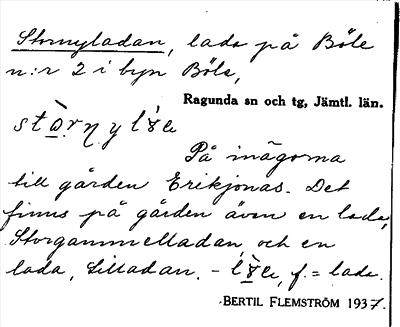 Stornyladan, lada på Böle
n:r 2 i byn Böle,
Ragunda sn och tg, Jämtl. län.
På inägorna
till gården Erikjonas. Det
finns på gården även en lada,
Storgammelladan, och en
lada, Lilladan. – f. = lada.
BERTIL FLEMSTRÖM 1937.